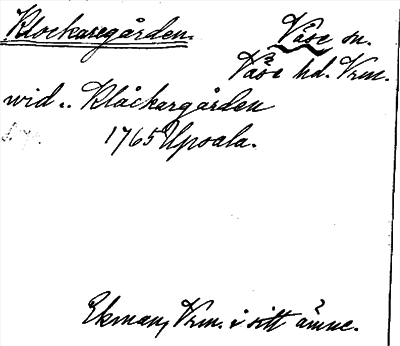 Klockaregården. Våse sn.
Våse hd. Vrm.
wid .. Klåckargården
1765 Upsala.
Ekman, Vrm. i sitt ämne.